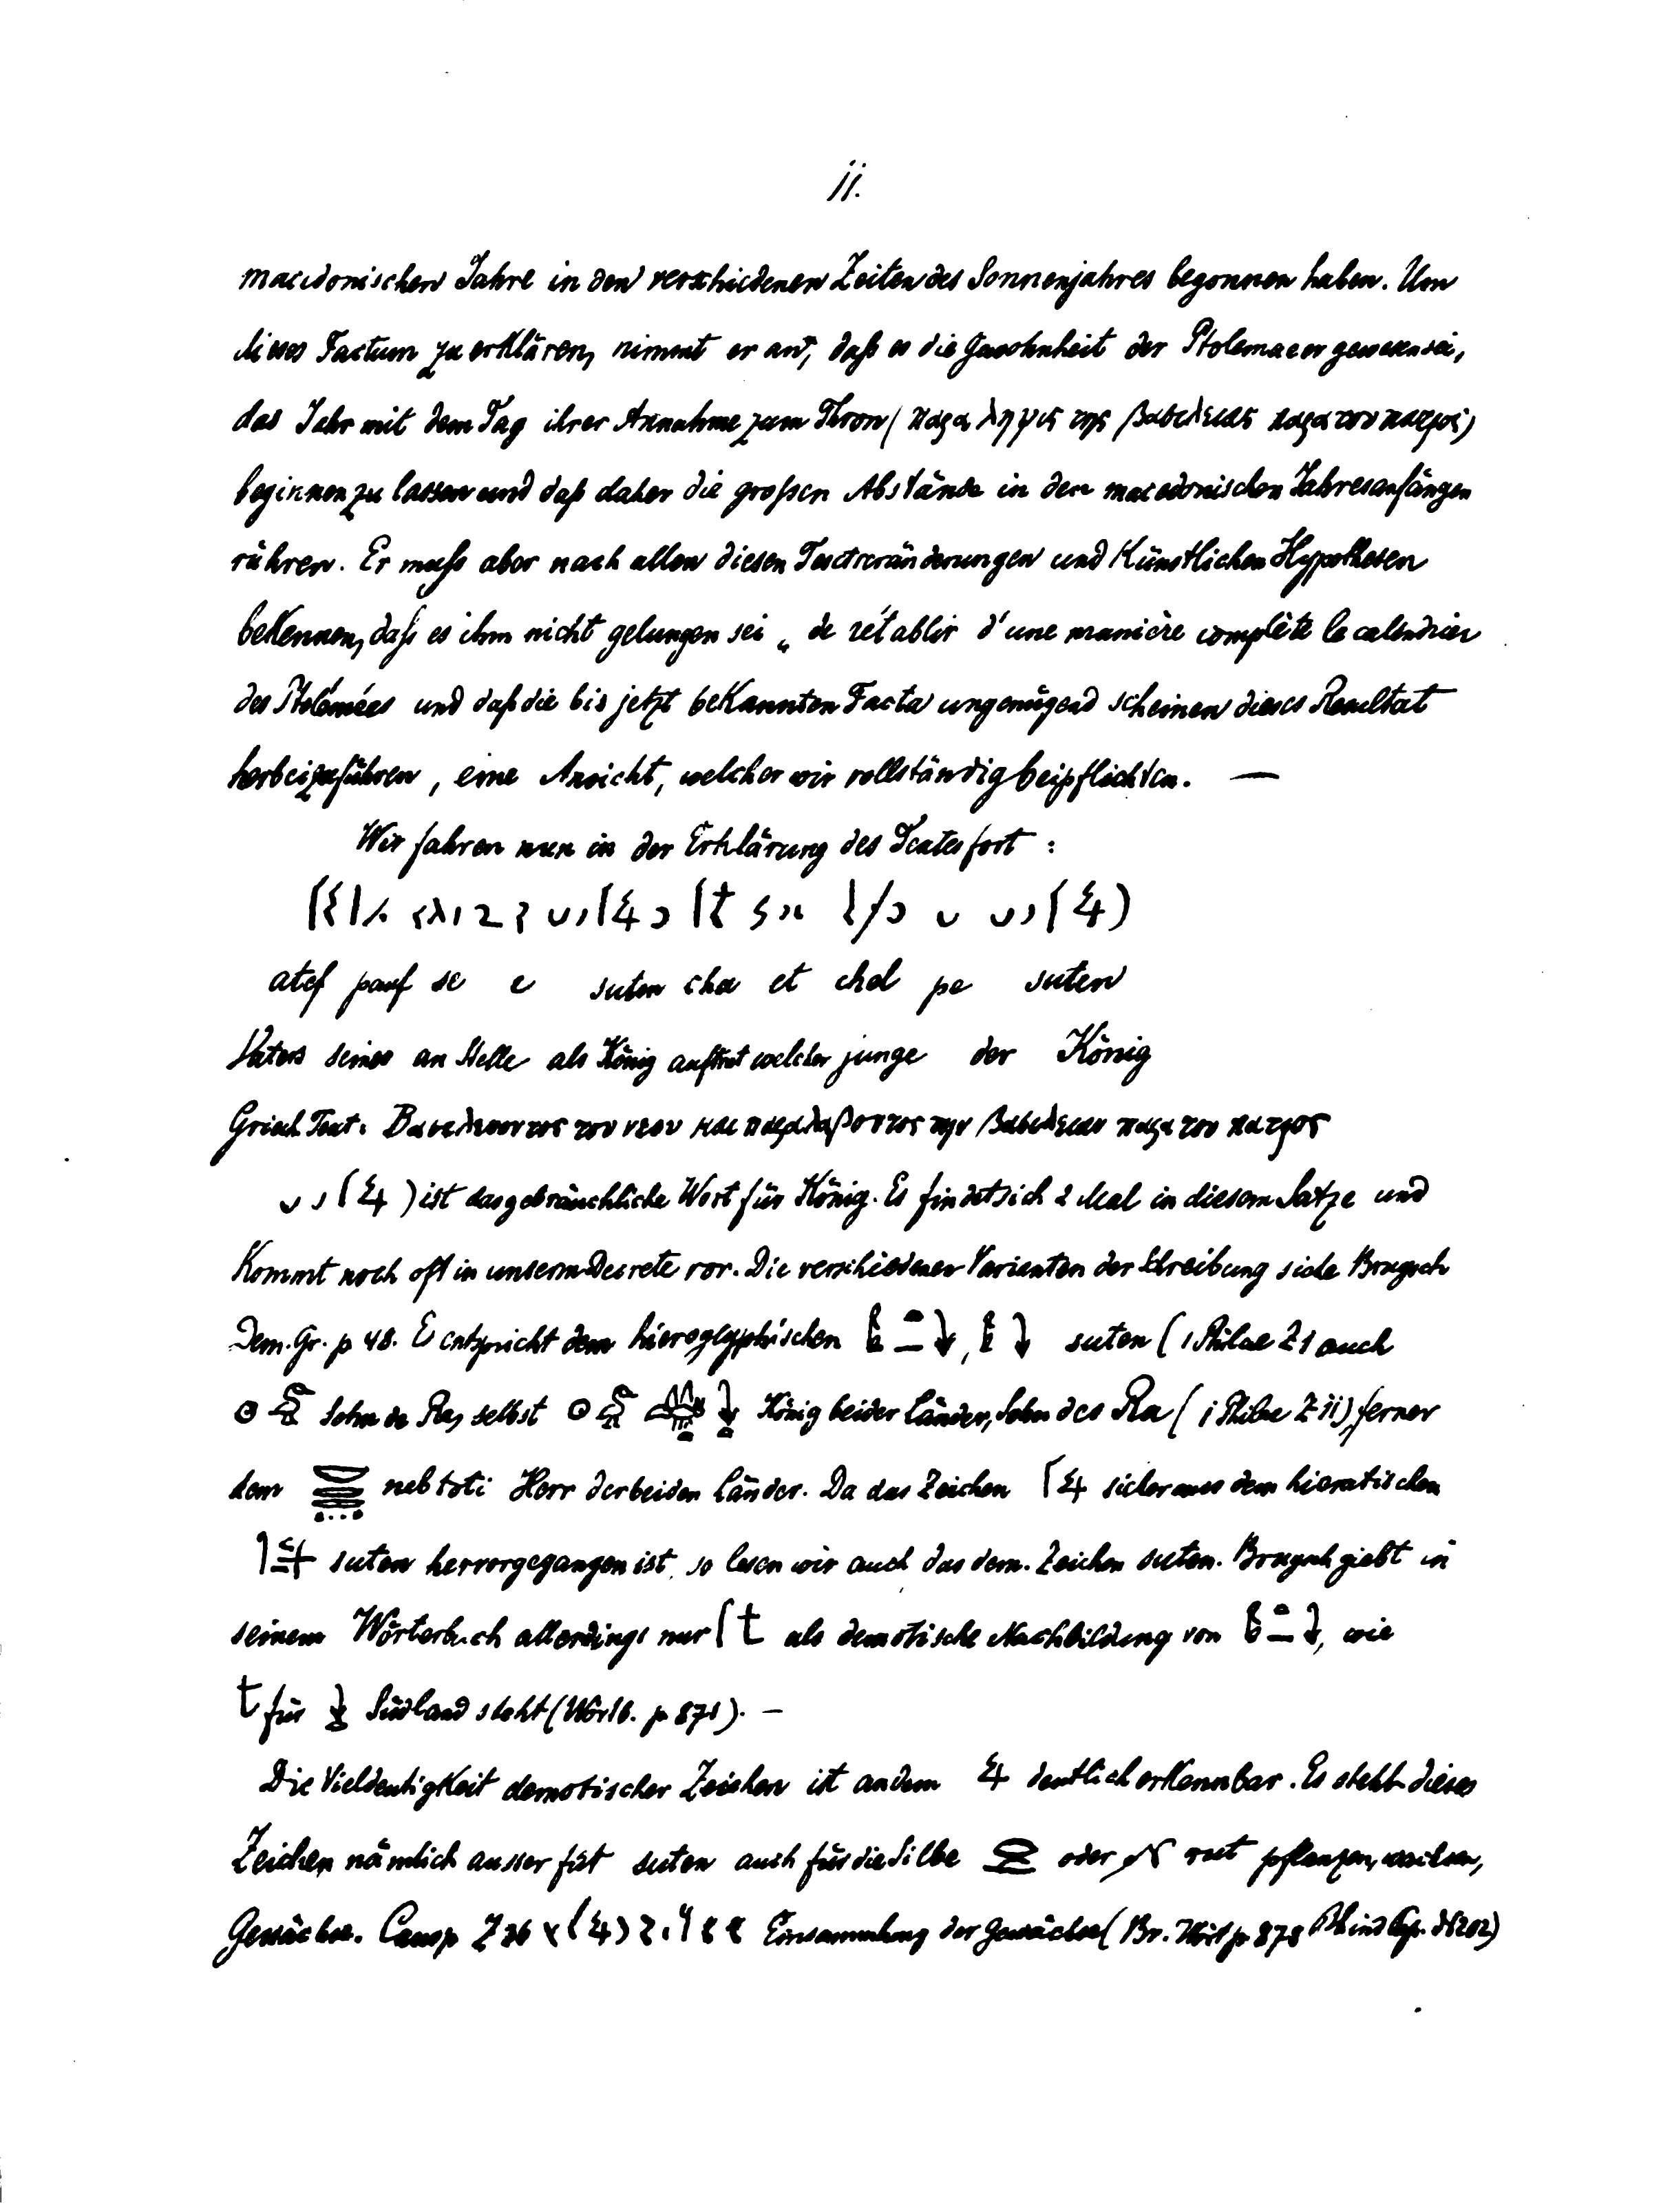 ii.
macedonischen Jahre in den verschiedenen Zeiten des Sonnenjahres begonnen haben. Um
dieses Factum zu erklären, nimmt er an, daß es die Gewohnheit der Ptolemaeer gewesen sei,
das Jahr mit dem Tag ihrer Annahme zum Thron (παραληψις της βασιλειας παρα του πατρος)
beginnen zu lassen und daß daher die großen Abstände in den macedonischen Jahresanfängen
rühren. Er muß aber nach allen diesen Textveränderungen und künstlichen Hypothesen
bekennen, daß es ihm nicht gelungen sei „ de rétablir d'une manière complète le calendrier
des Ptolémées und daß die bis jetzt bekannten Facta ungenügend scheinen dieses Resultat
herbeizuführen, eine Ansicht, welcher wir vollständig beipflichten. —
Wir fahren nun in der Erklärung des Textes fort :
atef pauf se e suten cha et chel pe suten
Vaters seines an Stelle als König auftrat welcher junge der König
Griech Text: Βασιλευοντος του νεου και παραλαβοντος την βασιλειαν παρα του πατρος
ist das gebräuchliche Wort für König. Es findet sich 2 Mal in diesem Satze und
kommt noch oft in unserm Decrete vor. Die verschiedenen Varianten der Schreibung siehe Brugsch
Dem. Gr. p 48. Es entspricht dem hieroglyphischen suten (1 Philae Z 1 auch
Sohn des Ra, selbst König beider Länder, Sohn des Ra (i Philae Z ii), ferner
dem neb toti Herr der beiden Länder. Da das Zeichen sicher aus dem hieratischen
suten hervorgegangen ist, so lesen wir auch das dem. Zeichen suten. Brugsch giebt in
seinem Wörterbuch allerdings nur als demotische Nachbildung von , wie
für Südland steht (Wörtb. p 871). —
Die Vieldeutigkeit demotischer Zeichen ist an dem deutlich erkennbar. Es steht dieses
Zeichen nämlich ausser für suten auch für die Silbe oder rut pflanzen, wachsen,
Gewächse. Canop Z 36 Einsammlung der Gewächse (Br. Wört p 878 Rhind Pap. N 202)